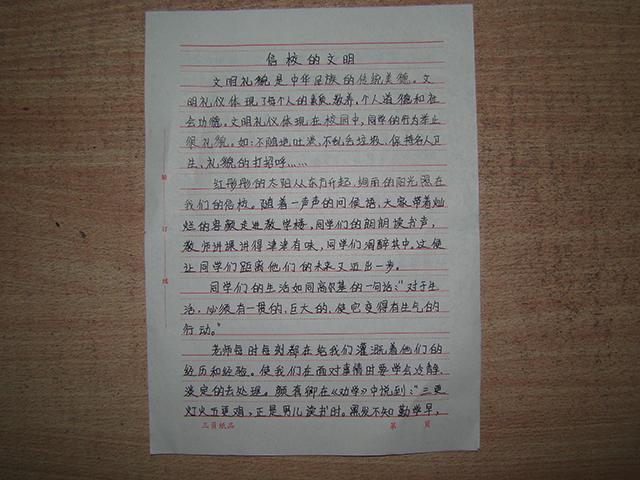 信校的文明
文明礼貌是中华民族的传统美德。文
明礼仪体现了每个人的素质、教养、个人道德和社
会功德。文明礼仪体现在校园中,同学的行为举止
很礼貌。如:不随地吐痰、不乱丢垃圾、保持个人卫
生、礼貌的打招呼……
红彤彤的太阳从东方升起,绚丽的阳光照在
我们的信校。随着一声声的问侯语,大家带着灿
烂的容颜走进教学楼,同学们的朗朗读书声,
教师讲课讲得津津有味,同学们陶醉其中。这使
让同学们距离他们的未来又迈出一步。
同学们的生活如同高尔基的一句话:“对于生
活,必须有一贯的、巨大的、使它变得有生气的
行动。”
老师每时每刻都在给我们灌溉着他们的
经历和经验。使我们在面对事情时要学会冷静、
淡定的去处理。颜真卿在《劝学》中说到:“三更
灯火五更鸡,正是男儿读书时。黑发不知勤学早,
装
订
线
三员纸品
第 页